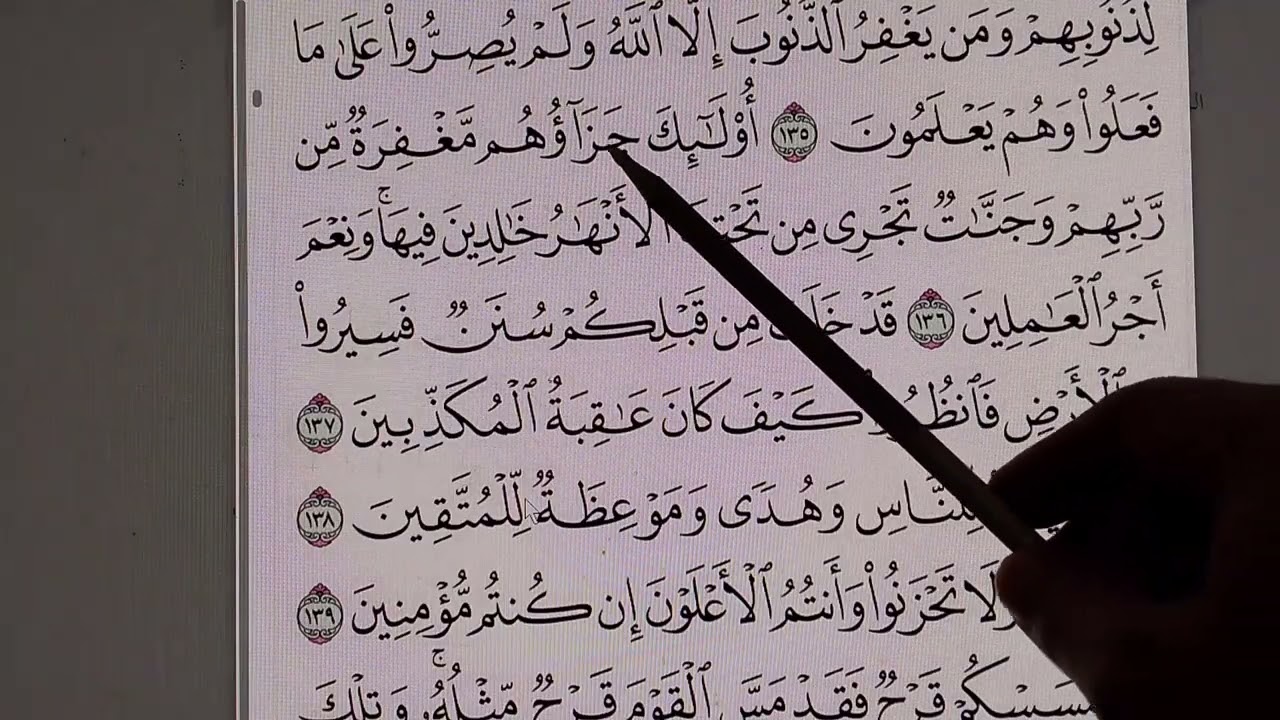 لِذُنُوبِهِمْ وَمَن يَغْفِرُ ٱلذُّنُوبَ إِلَّا ٱللَّهُ وَلَمْ يُصِرُّوا۟ عَلَىٰ مَا
فَعَلُوا۟ وَهُمْ يَعْلَمُونَ ١٣٥ أُو۟لَـٰٓئِكَ جَزَآؤُهُم مَّغْفِرَةٌ مِّن
رَّبِّهِمْ وَجَنَّـٰتٌ تَجْرِى مِن ٱلْأَنْهَـٰرُ خَـٰلِدِينَ فِيهَا ۚ وَنِعْمَ
أَجْرُ ٱلْعَـٰمِلِينَ ١٣٦ قَدْ خَلَتْ مِن قَبْلِكُمْ سُنَنٌ فَسِيرُوا۟
ٱلْأَرْضِ فَٱنظُرُوا۟ كَيْفَ كَانَ عَـٰقِبَةُ ٱلْمُكَذِّبِينَ ١٣٧
لِّلنَّاسِ وَهُدًى وَمَوْعِظَةٌ لِّلْمُتَّقِينَ ١٣٨
وَلَا تَحْزَنُوا۟ وَأَنتُمُ ٱلْأَعْلَوْنَ إِن كُنتُم مُّؤْمِنِينَ ١٣٩
يَمْسَسْكُمْ قَرْحٌ فَقَدْ مَسَّ ٱلْقَوْمَ قَرْحٌ مِّثْلُهُۥ ۚ وَتِلْكَ